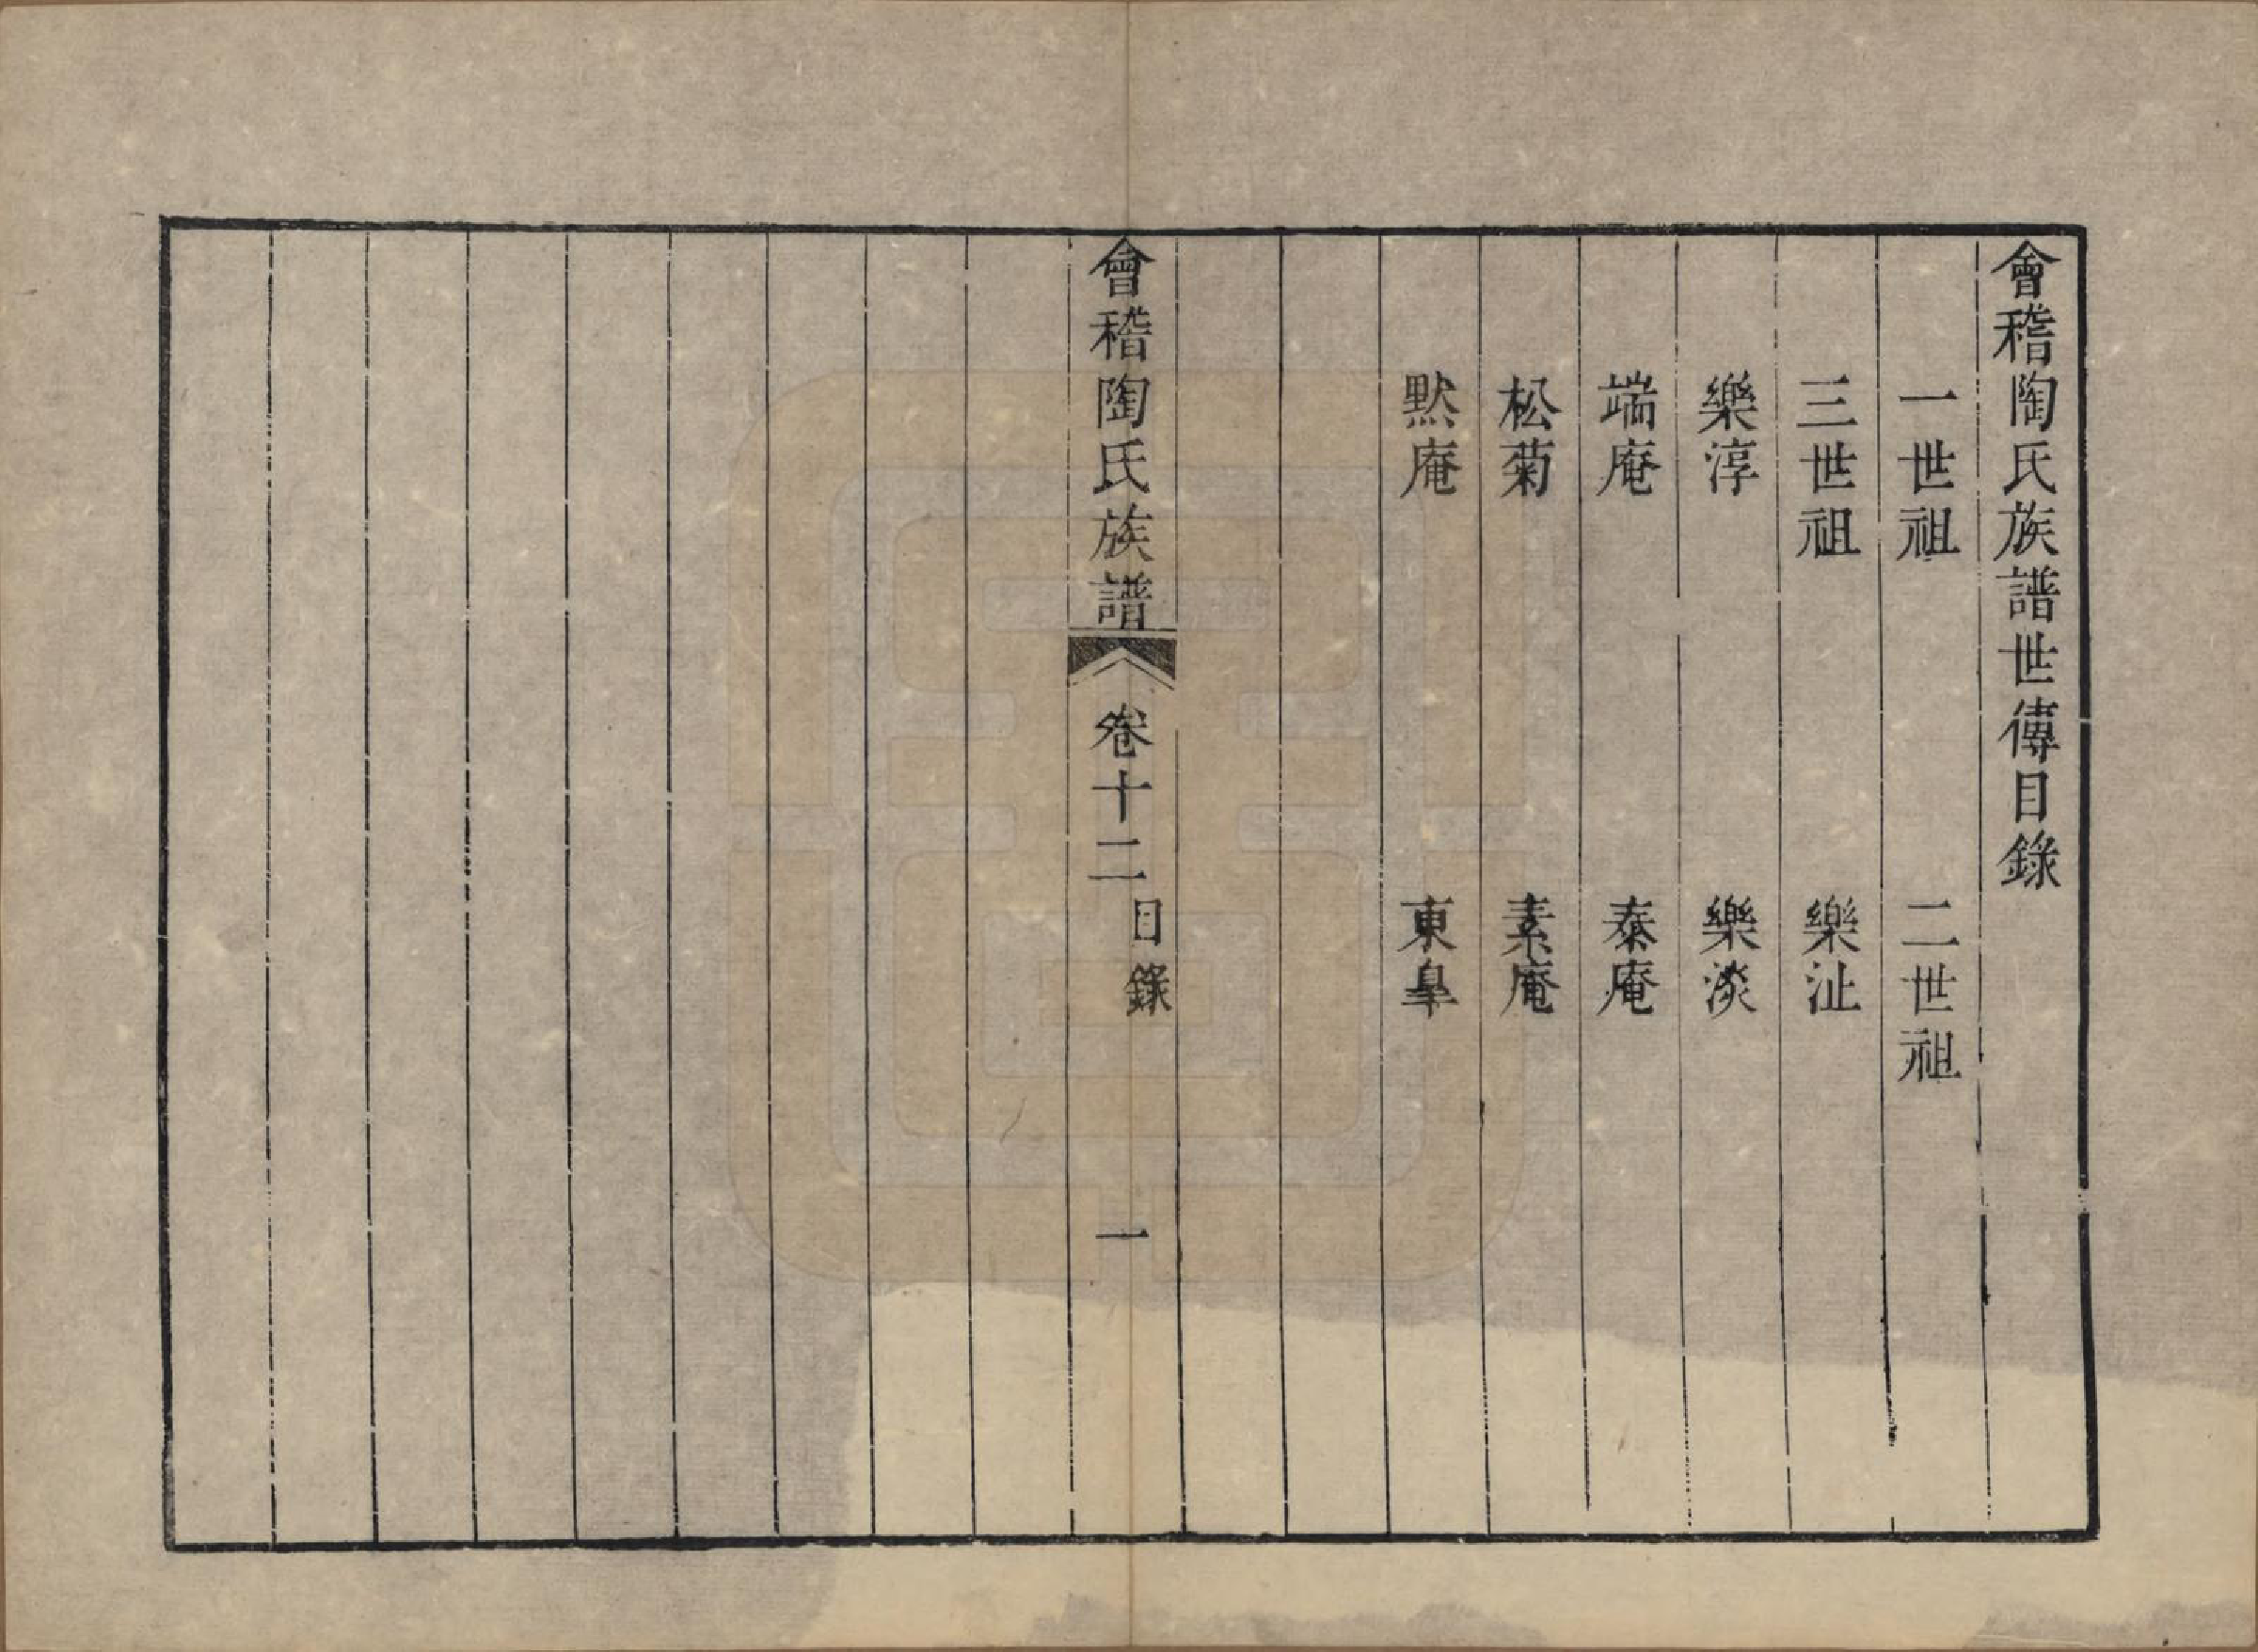 會稽陶氏族譜世傳目錄
一世祖 二世祖
三世祖 樂沚
樂淳 樂淡
端庵 泰庵
松菊 素庵
默庵 東臯
會稽陶氏族譜 卷十二 目錄 一